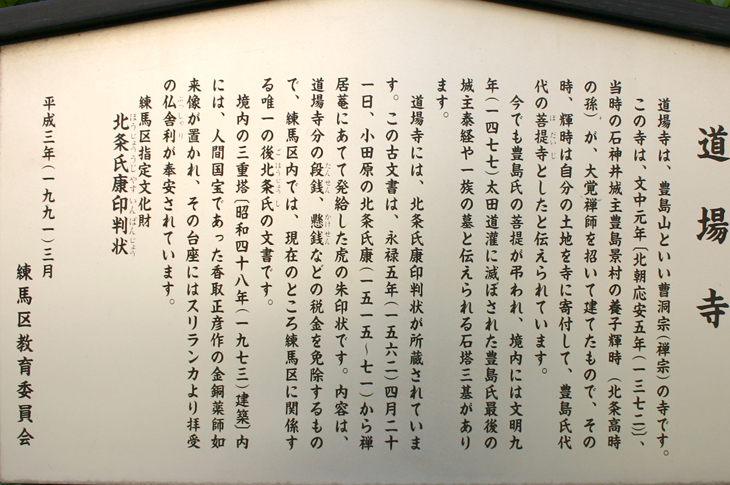 道場寺
道場寺は、豊島山といい曹洞宗（禅宗）の寺です。
この寺は、文中元年〔北朝応安五年（一三七二）、
当時の石神井城主豊島景村の養子輝時（北条高時
の孫）が、大覚禅師を招いて建てたもので、その
時、輝時は自分の土地を寺に寄付して、豊島氏代
代の菩提寺としたと伝えられています。
今でも豊島氏の菩提が弔われ、境内には文明九
年（一四七七）太田道灌に滅ぼされた豊島氏最後の
城主泰経や一族の墓と伝えられる石塔三基があり
ます。
道場寺には、北条氏康印判状が所蔵されていま
す。この古文書は、永禄五年（一五六二）四月二十
一日、小田原の北条氏康（一五一五～七一）から禅
居菴にあてて発給した虎の朱印状です。内容は、
道場寺分の段銭、懸銭などの税金を免除するもの
で、練馬区内では、現在のところ練馬区に関係す
る唯一の後北条氏の文書です。
境内の三重塔〔昭和四十八年（一九七三）建築〕内
には、人間国宝であった香取正彦作の金銅薬師如
来像が置かれ、その台座にはスリランカより拝受
の仏舎利が奉安されています。
練馬区指定文化財
北条氏康印判状
平成三年（一九九一）三月
練馬区教育委員会